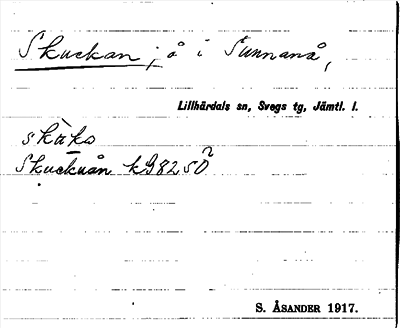 Skuckan; å i Sunnanå,
Lillhärdals sn, Svegs tg, Jämtl. l.
Skuckuån
S. ÅSANDER 1917.